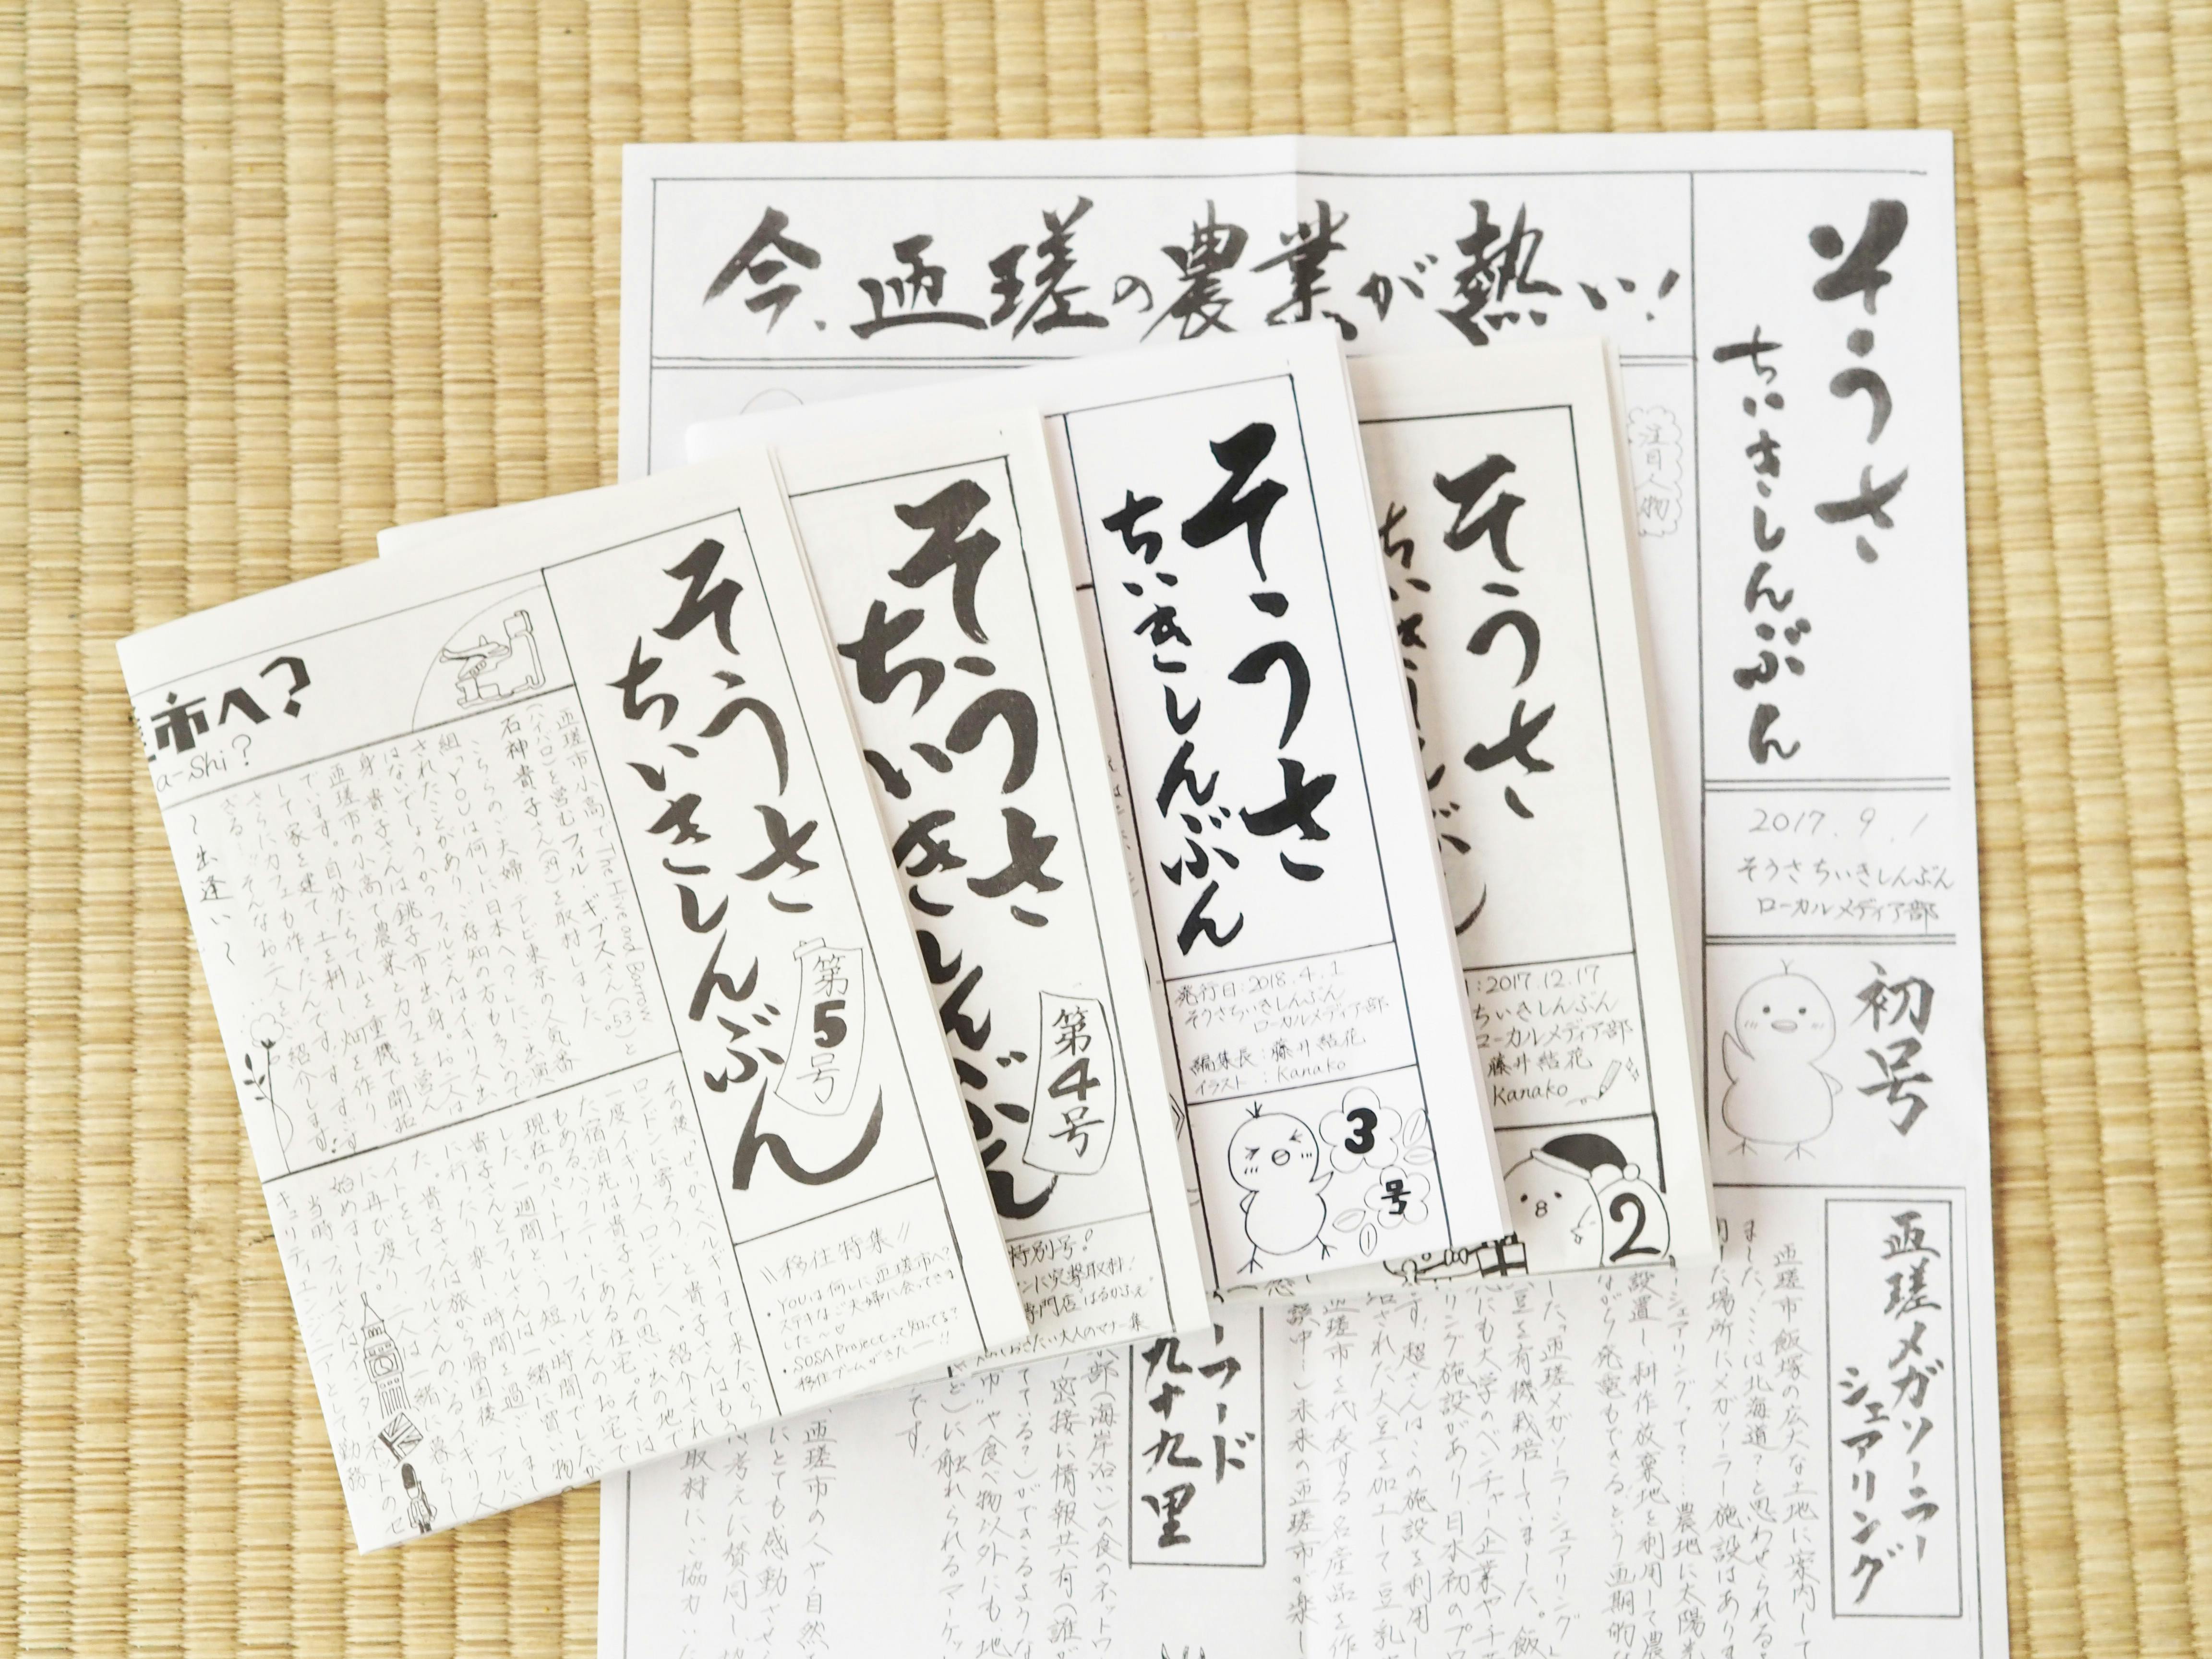 今、匝瑳の農業が熱い!
そうさ
ちいきしんぶん
2017.9.1
そうさちいきしんぶん
ローカルメディア部
初号
注目人物
匝瑳メガソーラー
シェアリング
匝瑳市飯塚の広大な土地に案内して
ました。ここは北海道?と思わせられる
た場所にメガソーラー施設はありま
シェアリングって?…農地に太陽光
設置し耕作放棄地を利用して農
ながら発電もできるという画期的
した。匝瑳メガソーラーシェアリング
豆を有機栽培していました。飯
にも大学のベンチャー企業や千葉
リンケ施設があり、日本初のプロ
す。超さんはこの施設を利用し
された大豆を加工して豆乳
匝瑳市を代表する名産品を作
験中!未来の匝瑳市が楽し
フード
九十九里
そうさ
ちいきしんぶん
:2017.12.17
ちいきしんぶん
ローカルメディア部
藤井結花
Kanako
2
そうさ
ちいきしんぶん
発行日:2018.4.1
そうさちいきしんぶん
ローカルメディア部
編集長:藤井結花
イラスト:Kanako
3
号
そうさ
ちいきしんぶん
第4号
特別号!
ンに突撃取材!
専門店"はるかふぇ"
おきたい大人のマナー集
そうさ
ちいきしんぶん
第5号
\\移住特集//
・YOUは何しに匝瑳市へ?
ステキなご夫婦に会ってきま
した♡
・SOSA Projectって知ってる?
移住ブームがきたー!!
市へ?
a-Shi?
匝瑳市小高でThe Hive and Barrow
(ハイバロ)を営むフィル・ギブスさん(53)と
石神貴子さん(49)を取材しました。
こちらのご夫婦、テレビ東京の人気番
組っYOUは何しに日本へ?」にご出演
されたことがあり、ご存知の方も多いので
はないでしょうか?フィルさんはイギリス出
身。貴子さんは銚子市出身。お二人は
匝瑳市の小高で農業とカフェを営ん
でいます。自分たちで山を重機で開拓
して家を建て、土を耕し、畑を作り、
さらにカフェも作ったんです。すごす
ぎる…。そんなお二人をご紹介します!
～出逢い～
その後、"せっかくベルギーまで来たから
ロンドンに寄ろう"と貴子さんはもう
一度イギリス ロンドンへ。紹介され
た宿泊先は貴子さんの思い出の地で
もあるパットニーにある住宅。そこは
現在のパートナー フィルさんのお宅で
した。一週間という短い時間でしたが
貴子さんとフィルさんは一緒に買い物
に行ったり楽しい時間を過ごしまし
た。貴子さんは旅から帰国後、アルバ
イトをして、フィルさんのいるイギリス
に再び渡り、二人は一緒に暮らし
始めました。
当時、フィルさんはインターネットのセ
キュリティエンジニアとして勤務
匝瑳市の人や自然
にとても感動
考えに賛同し
取材にご協力
(海岸沿い)の食のネットワ
密接に情報共有(誰が
てている?)ができるような
"や食べ物以外にも、地
に触れられるマーケッ
です。